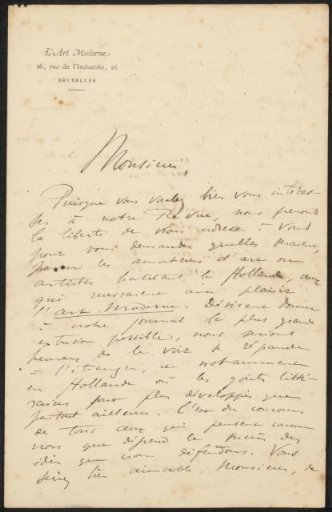 L'Art Moderne
26, rue de l'Industrie, 26
BRUXELLES
Monsieur,
Puisque vous voulez bien vous intéres-
ser à notre Revue, nous prenons
la liberté de nous adresser à vous
pour vous demander quelles seraient,
parmi les amateurs d'art ou
artistes habitant la Hollande, ceux
qui recevraient avec plaisir
l'Art Moderne. Désirant donner
à notre journal la plus grande
extension possible, nous serions
heureux de le voir se répandre
à l'étranger, et notamment
en Hollande où les goûts litté-
raires sont plus développés que
partout ailleurs. C'est du concours
de tous ceux qui pensent comme
nous que dépend le succès des
idées que nous défendons. Vous
seriez bien aimable, Monsieur, de